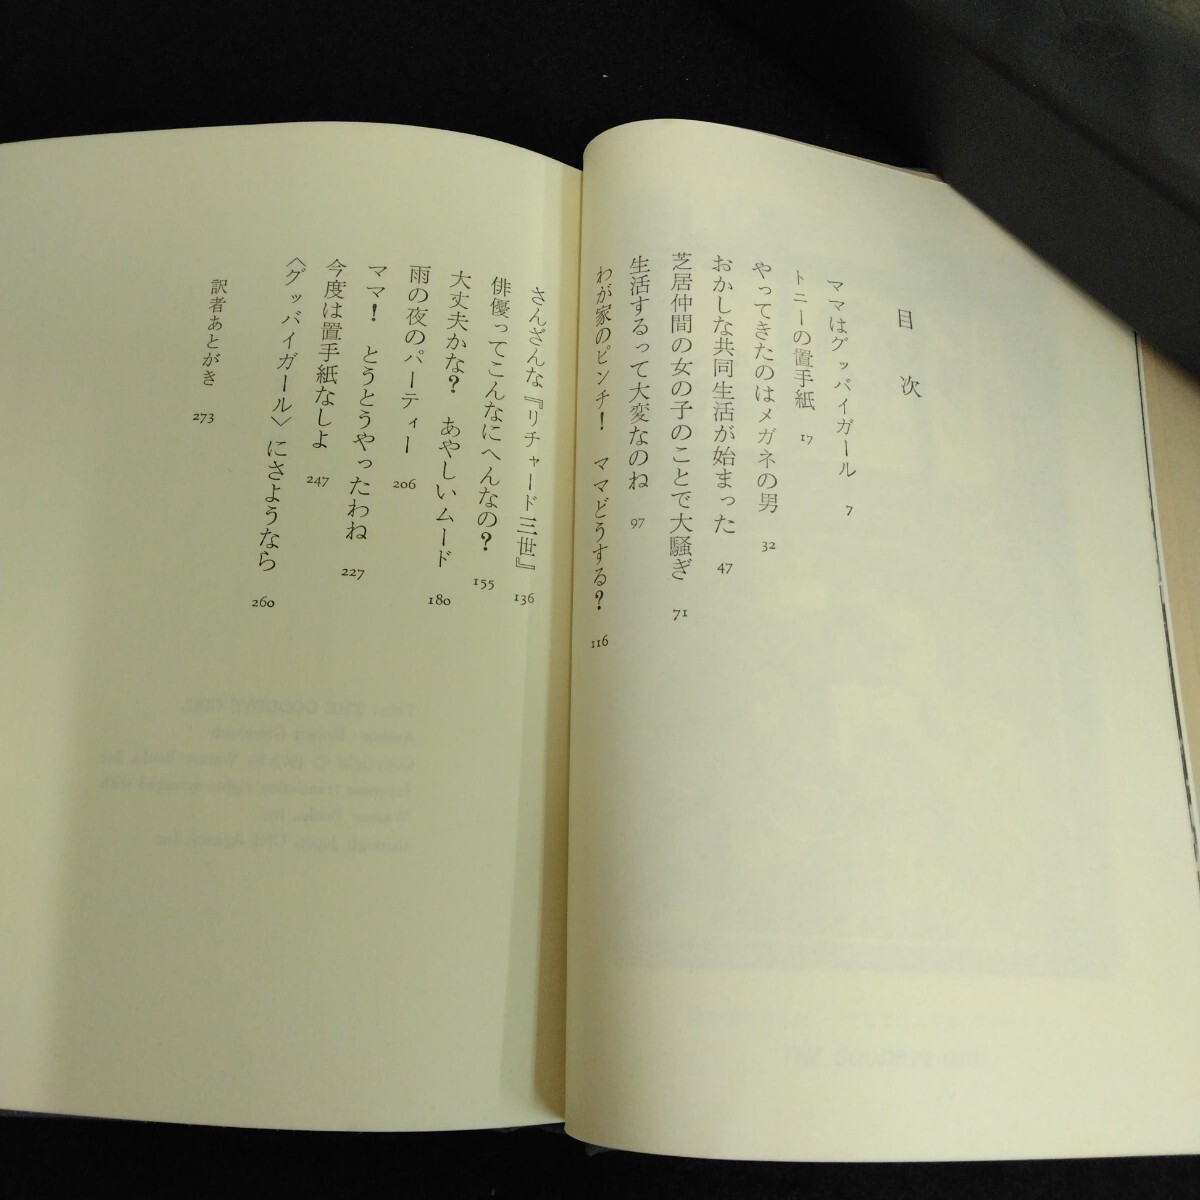 目次
ママはグッバイガール 7
トニーの置手紙 17
やってきたのはメガネの男 32
おかしな共同生活が始まった 47
芝居仲間の女の子のことで大騒ぎ 71
生活するって大変なのね 97
わが家のピンチ! ママどうする? 116
さんざんな『リチャード三世』 136
俳優ってこんなにへんなの? 155
大丈夫かな? あやしいムード 180
雨の夜のパーティー 206
ママ! とうとうやったわね 227
今度は置手紙なしよ 247
〈グッバイガール〉にさようなら 260
訳者あとがき 273